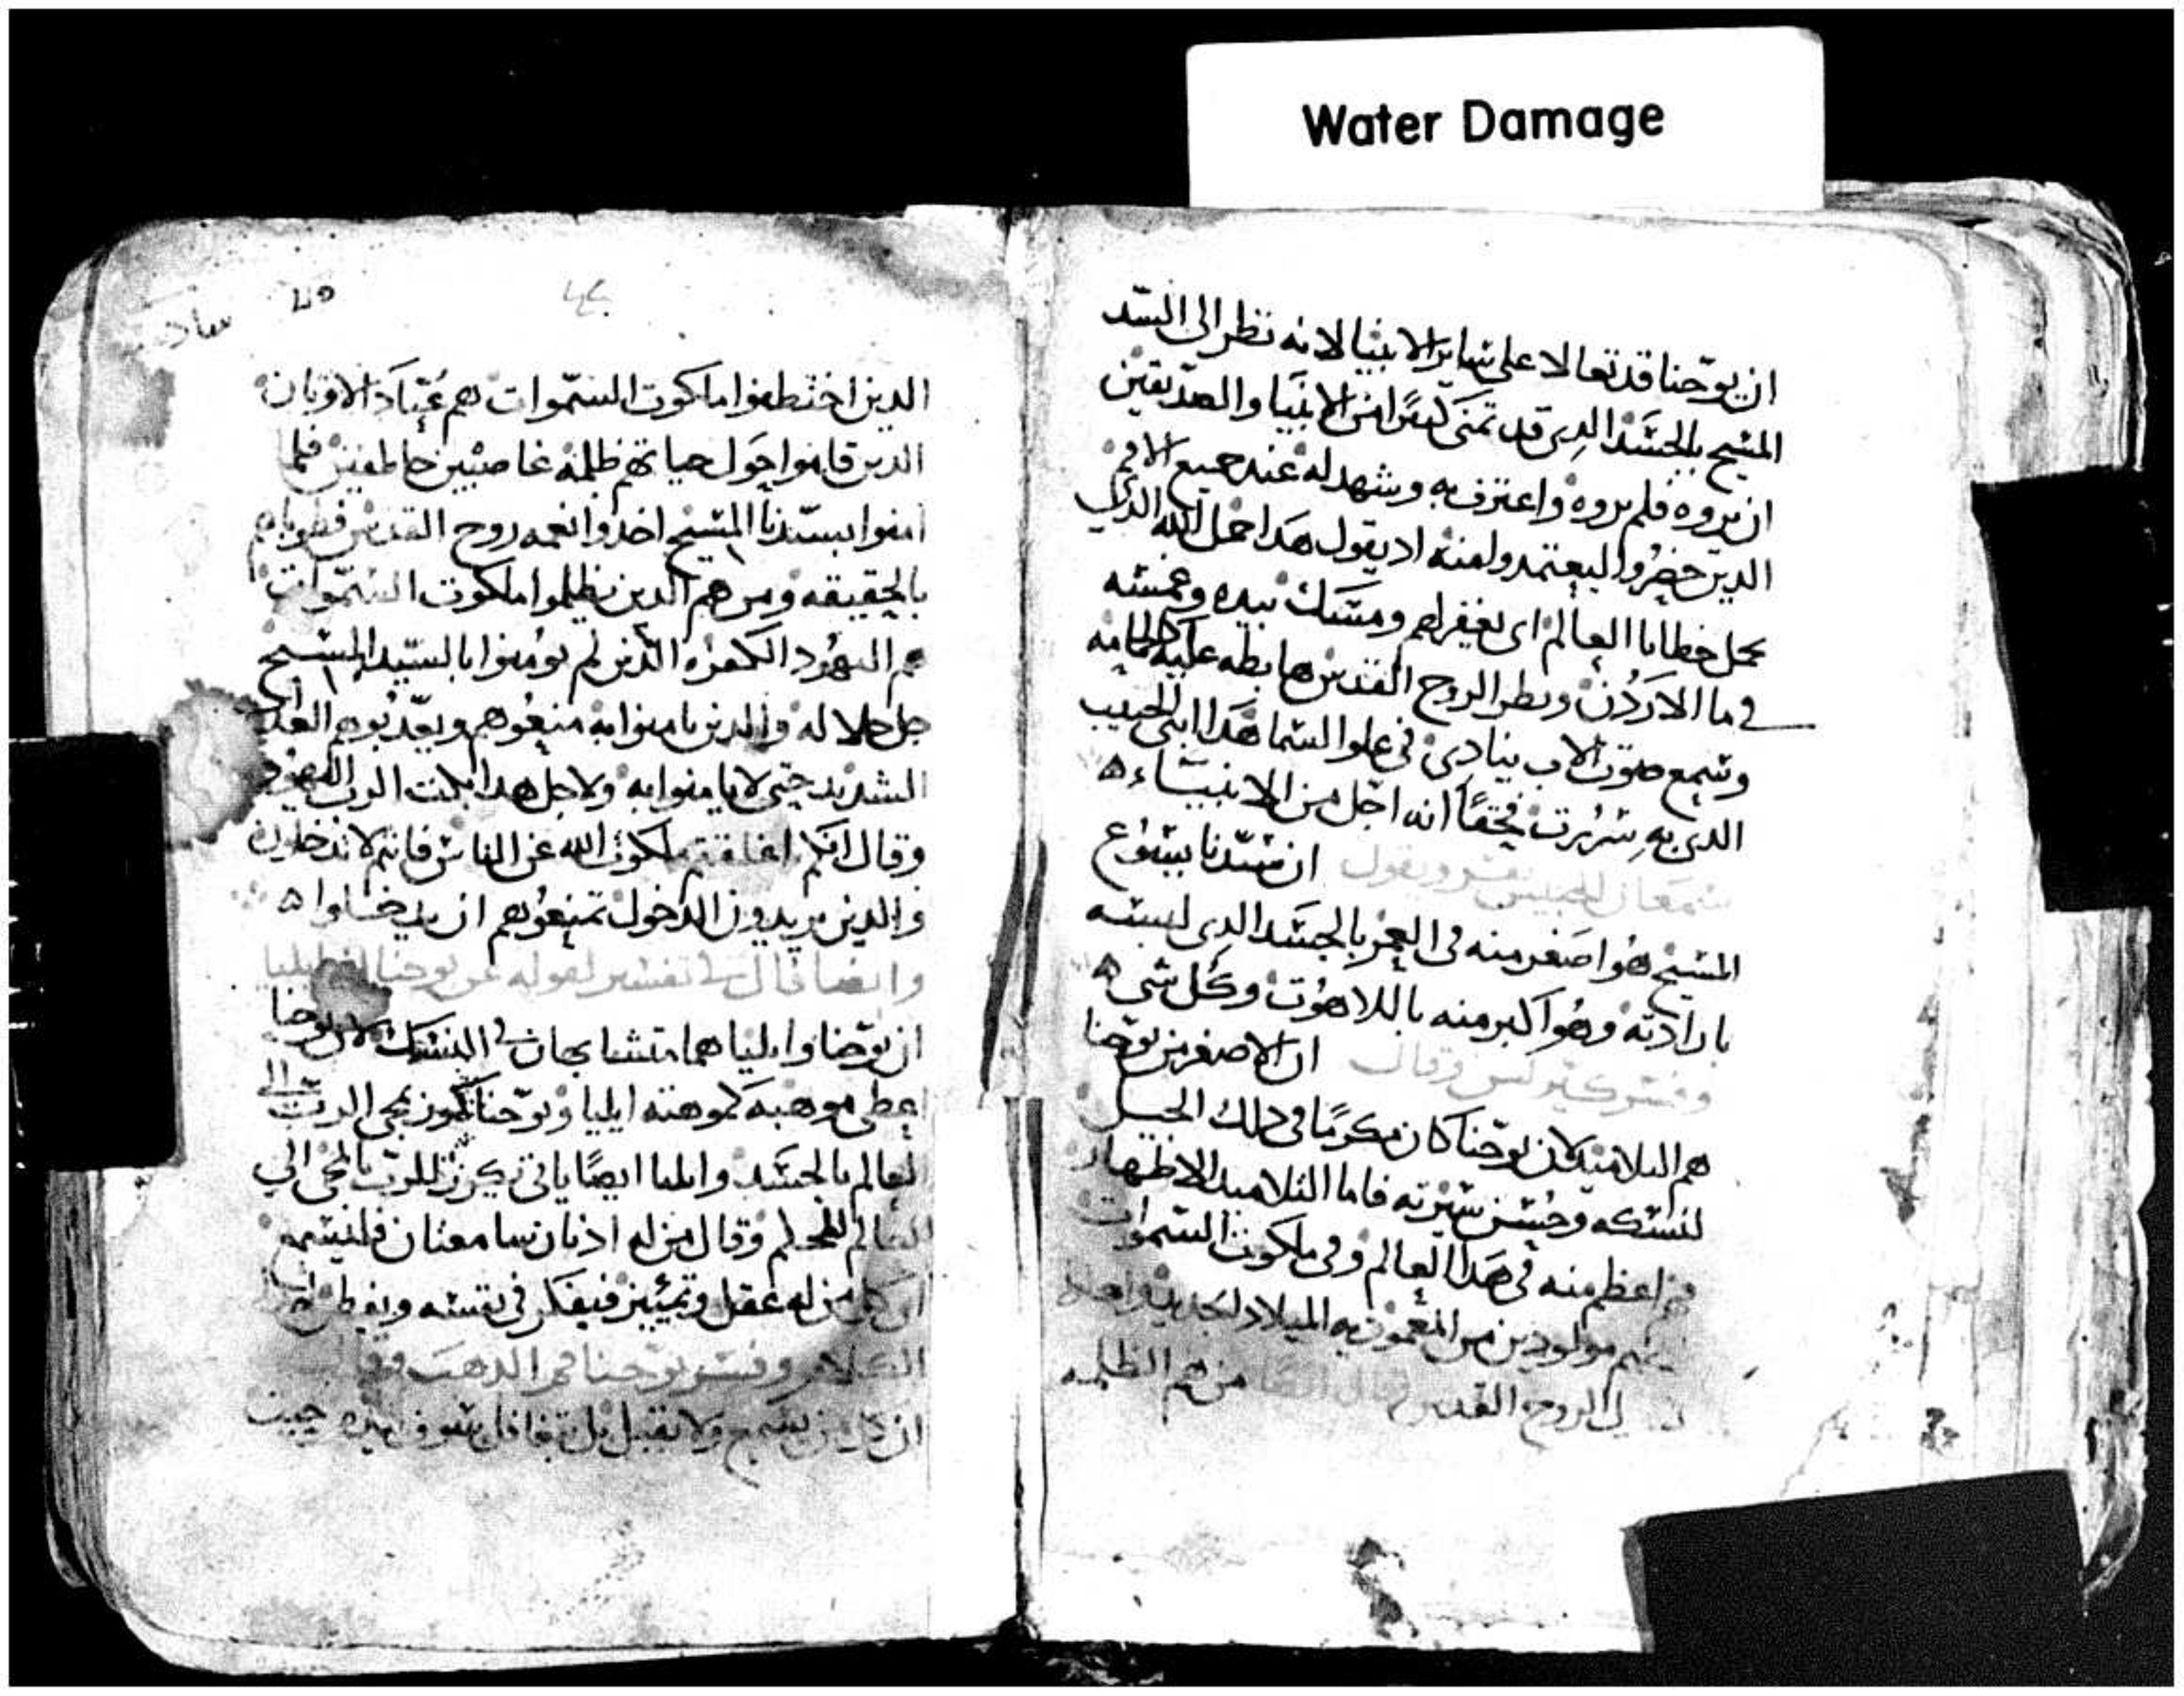 Water Damage
ان يوحنا قد تعالا على ساير الانبيا لانه نظر الى السيد
المسيح بالجسد الدي قد تمنى كثيرًا من الانبيا والصديقين
ان يروه فلم يروه واعترف به وشهد له عند جميع الامم
الدين حضروا ليعتمدوا منه اد يقول هدا حمل الله الدي
يحمل خطايا العالم اى يغفر لهم ومسك بيده وغمسه
في ما الاردن ونظر الروح القدس هابطه عليه كالحمامه
وسمع صوت الاب ينادي في علوا السما هدا ابني الحبيب
الدي به سررت فحقًا انه اجل من الانبياء ه
سمعان الحبيس يفسر ويقول ان سيدنا يسوع
المسيح هوا اصغر منه في العمر بالجسد الدي لبسه
بارادته وهوا اكبر منه باللاهوت وكل شي ه
وفسر كيرلس وقال ان الاصغر من يوحنا
هم التلاميد لان يوحنا كان مكرمًا في دلك الجيل
لنسكه وحسن سيرته فاما التلاميد الاطهار
هم اعظم منه في هدا العالم وفي ملكوت السموات
مولودين من المعموديه الميلاد الجديد
الروح القدس وقال ايضًا من هم الظلمه
سادس
الدين اختطفوا ملكوت السموات هم عباد الاوتان
الدين قاموا حول حياتهم ظلمه غاصبين خاطفين فلما
امنوا بسيدنا المسيح اخدوا نعمه روح القدس فطوباهم
بالحقيقه ومن هم الدين يظلموا ملكوت السموات
هم اليهود الكفره الدين لم يومنوا بالسيد المسيح
جل جلاله والدين يامنوا به منعوهم ويعدبوهم العداب
الشديد حتى لا يامنوا به ولاجل هدا بكت الرب اليهود
وقال انكم اغلقتم ملكوت الله عن الناس فانتم لا تدخلون
والدين يريدون الدخول تمنعوهم ان يدخلوا ه
وايضا قال في تفسير لقوله عن يوحنا ايليا
ان يوحنا وايليا هما متشابهان في النسك لان يوحنا
اعطى موهبه كموهبة ايليا ويوحنا كرز بمجى الرب الى
العالم بالجسد وايليا ايضًا ياتى يكرز للرب بالمجى الي
العالم وقال من له ادنان سامعتان فليسمع
اى كل من له عقل وتمييز فيفكر في نفسه ويفطن
الكلام وفسر يوحنا فم الدهب وقال
ان كل من يسمع ولا يقبل بل يتغافل سوف